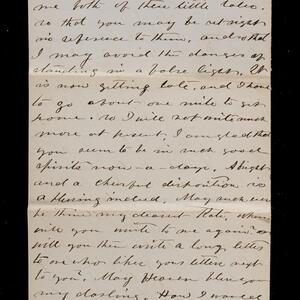 me both of these little tales.
so that you may be set right
in reference to them, and so that
I may avoid the danger of
standing in a false light. It
is now getting late, and I have
to go about one mile to get
home. so I will not write much
more at present. I am glad that
you seem to be in such good
spirits now-a-days. A bright
and a cheerful disposition is
a blessing indeed. May such ever
be thine my dearest Kate, when
will you write to me again? or
will you then write a long letter
to one who likes your letters next
to you? May Heaven bless you
my darling. How I